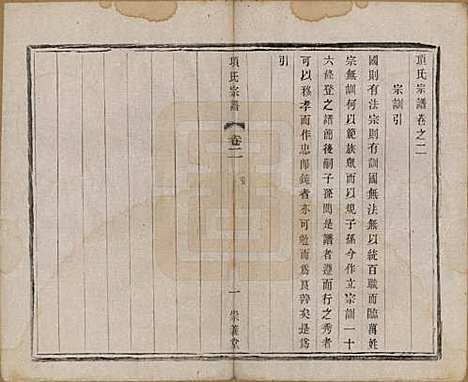 項氏宗譜卷之二
宗訓引
國則有法宗則有訓國無法無以統百職而臨萬姓
宗無訓何以範族眾而以規子孫今作立宗訓一十
六條登之譜簡後嗣子孫閱是譜者遵而行之秀者
可以移孝而作忠師鈍者亦可勉而為良善矣是為
引
項氏宗譜
卷二
一
崇義堂